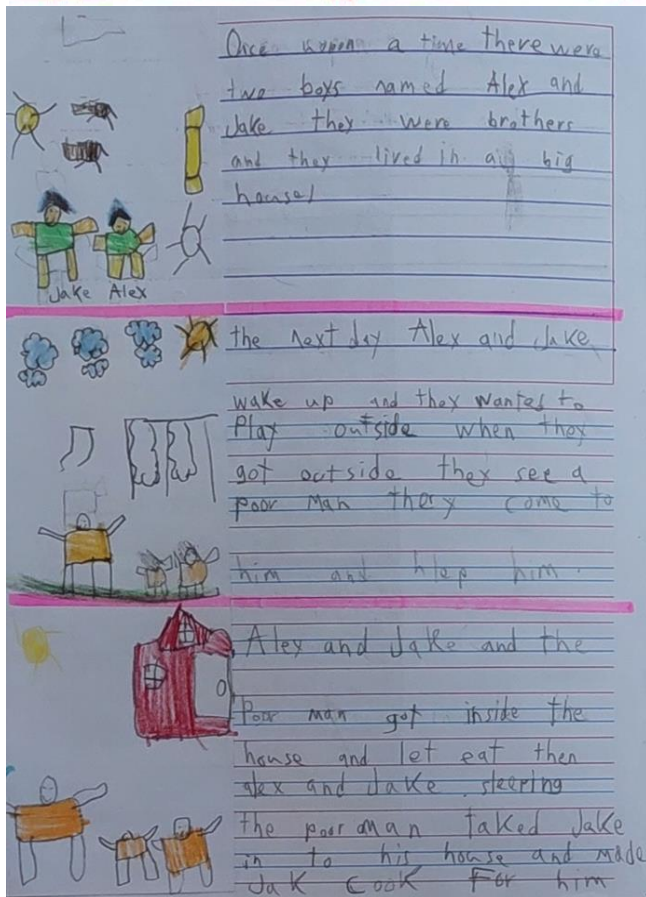 Once upon a time there were
two boys named Alex and
Jake they were brothers
and they lived in a big
house!
Jake Alex
the next day Alex and Jake
wake up and they wantes to
Play outside when they
got outside they see a
poor man they come to
him and hlep him.
Alex and Jake and the
Poor man got inside the
house and let eat then
alex and Jake sleeping
the poor man taked Jake
in to his house and made
Jak cook For him